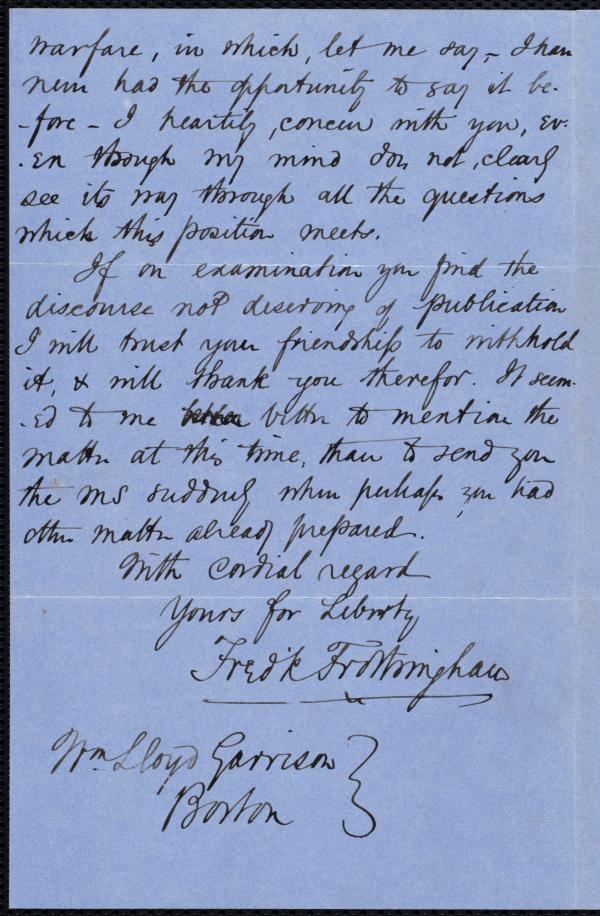 warfare, in which, let me say, – I have
never had the opportunity to say it be-
-fore – I heartily, concur with you, ev-
-en though my mind does not, clearly
see its way through all the questions
which this position meets.
If on examination you find the
discourse not deserving of publication
I will trust your friendship to withhold
it, & will thank you therefor. It seem-
-ed to me better to mention the
matter at this time, than to send you
the ms suddenly when perhaps you had
other matter already prepared.
With cordial regard
Yours for Liberty
Fred'k Frothingham
Wm Lloyd Garrison
Boston